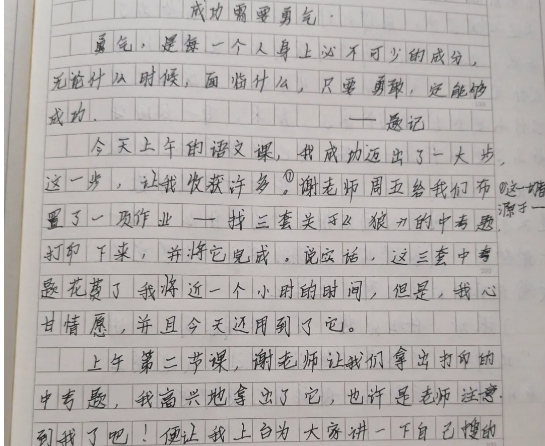 成功需要勇气.
勇气，是每一个人身上必不可少的成分，
无论什么时候，面临什么，只要勇敢，定能够
成功.
——题记
今天上午的语文课，我成功迈出了一大步，
这一步，让我收获许多。①谢老师周五给我们布
①这一切
源于一
置了一项作业——找三套关于《狼》的中考题
打印下来，并将它完成。说实话，这三套中考
题花费了我将近一个小时的时间，但是，我心
甘情愿，并且今天还用到了它。
上午第二节课，谢老师让我们拿出打印的
中考题，我高兴地拿出了它，也许是老师注意
到我了吧！便让我上台为大家讲一下自己搜的